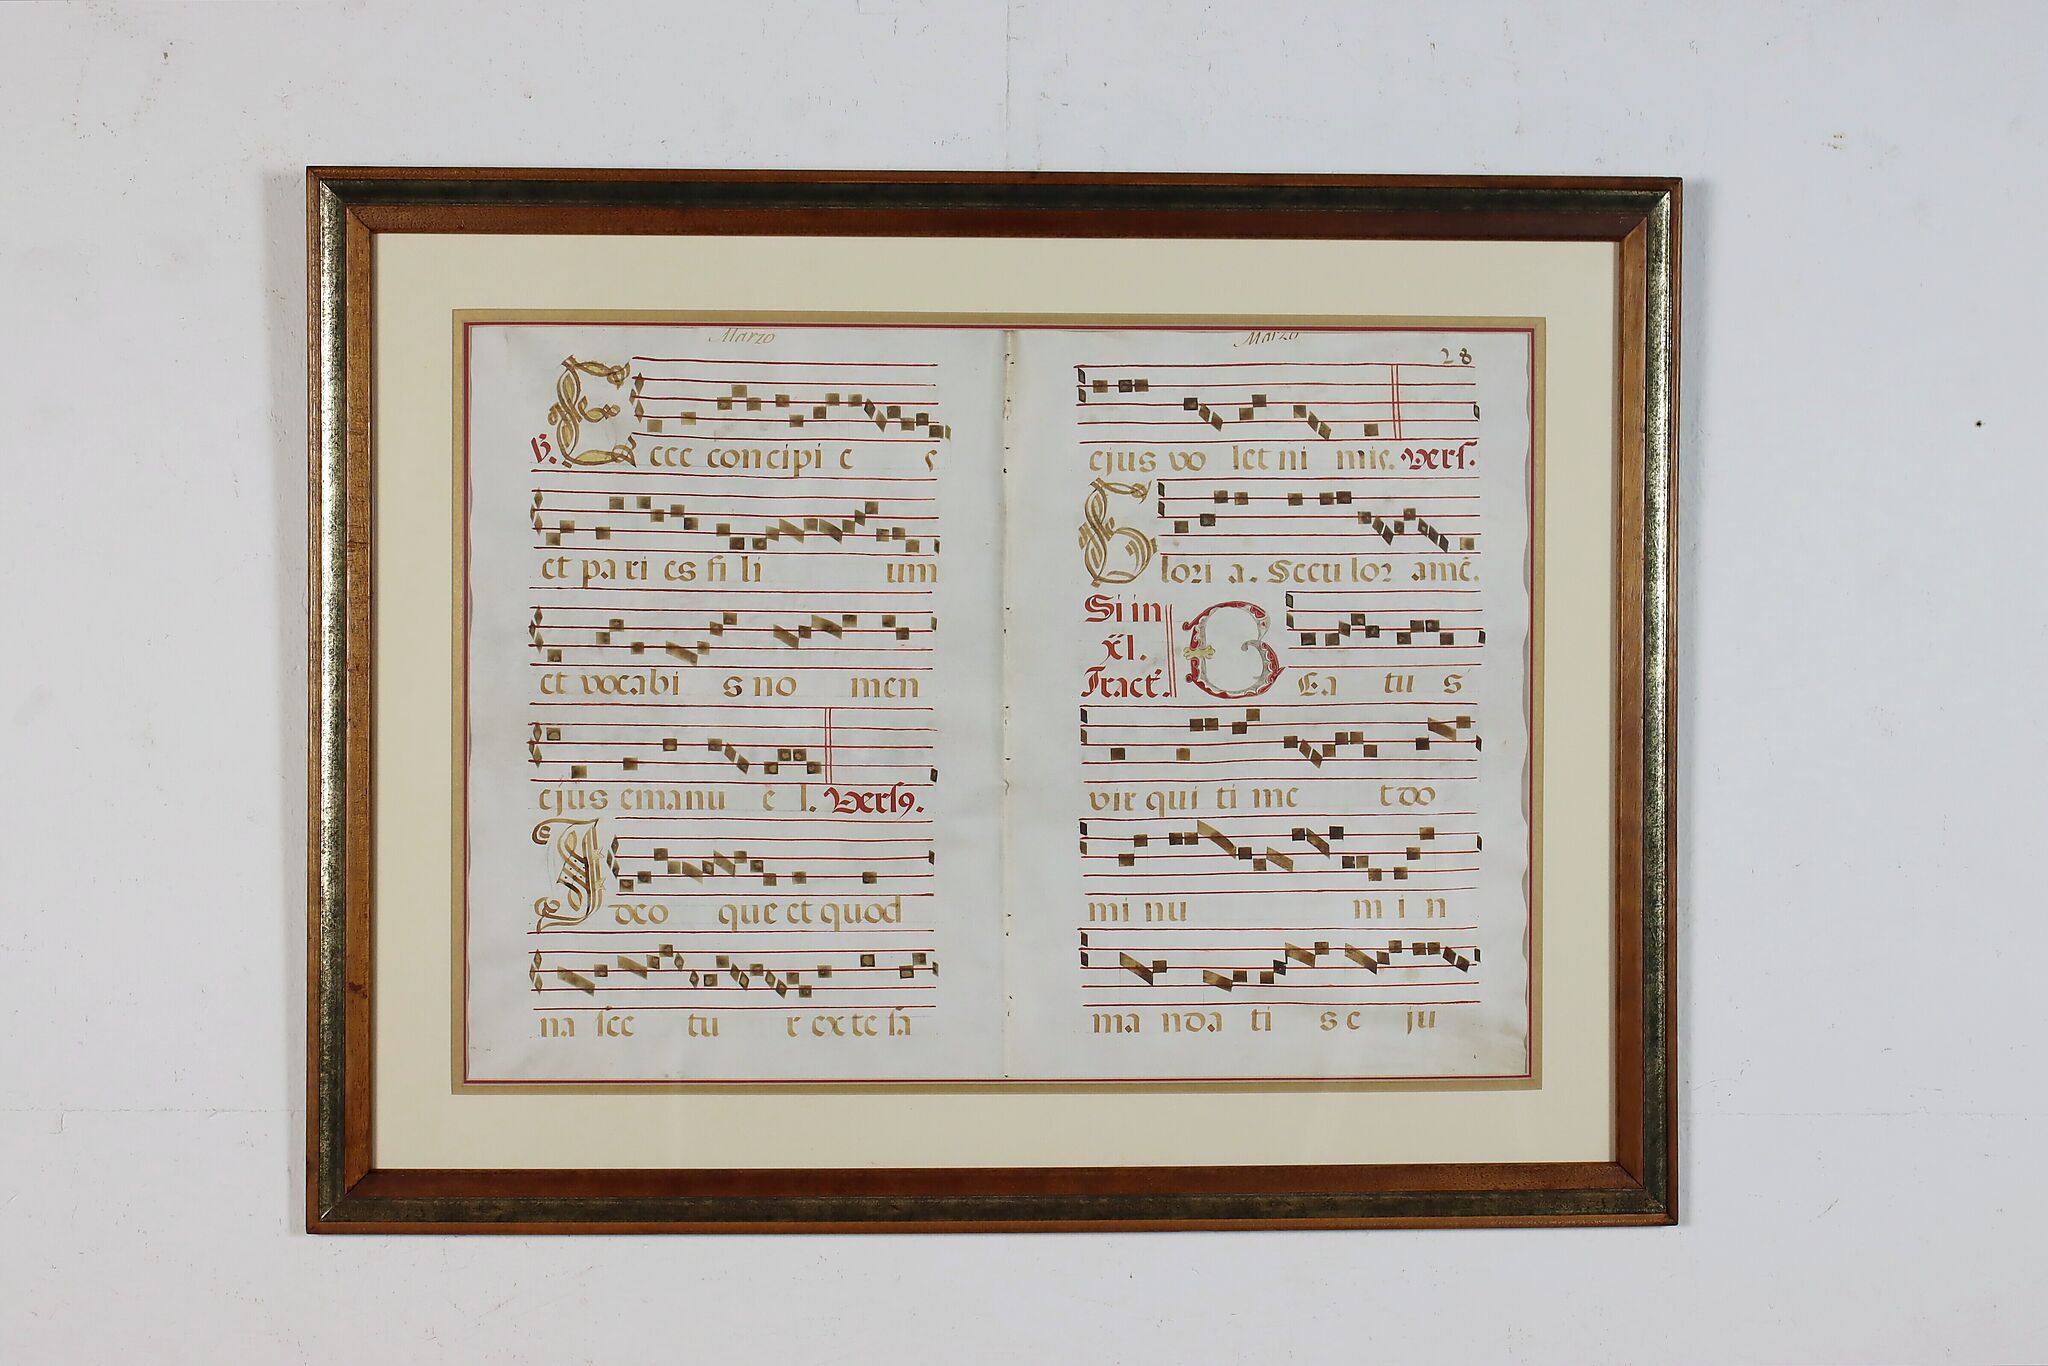 Marzo
℣. Ecce concipi e e
et pa ri es fi li um
et vocabi s no men
ejus emanu e l. Versꝯ.
Ideo que et quod
na sce tu r ex te sa
Marzo
28
ejus vo let ni mis. Vers.
Glori a. Secu lor amẽ.
Si in
Xl.
Tract.
BEa tu s
vir qui ti me t do
mi nu m i n
ma nda ti s e ju